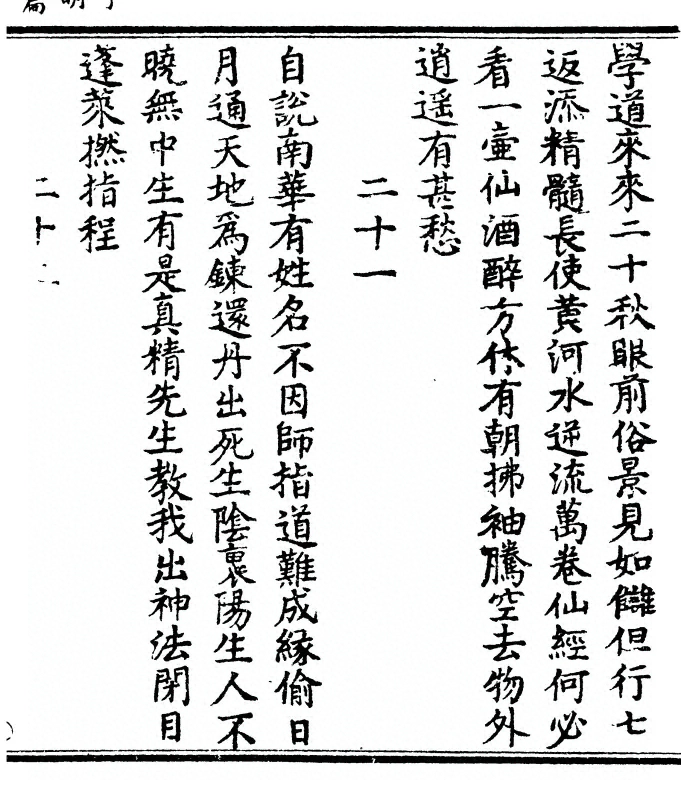 學道來來二十秋眼前俗景見如讎但行七
返添精髓長使黃河水逆流萬卷仙經何必
看一壺仙酒醉方休有朝拂袖騰空去物外
逍遥有甚愁
二十一
自說南華有姓名不因師指道難成緣偷日
月通天地爲鍊還丹出死生陰裏陽生人不
曉無中生有是真精先生教我出神法閉目
蓬萊撚指程
二十